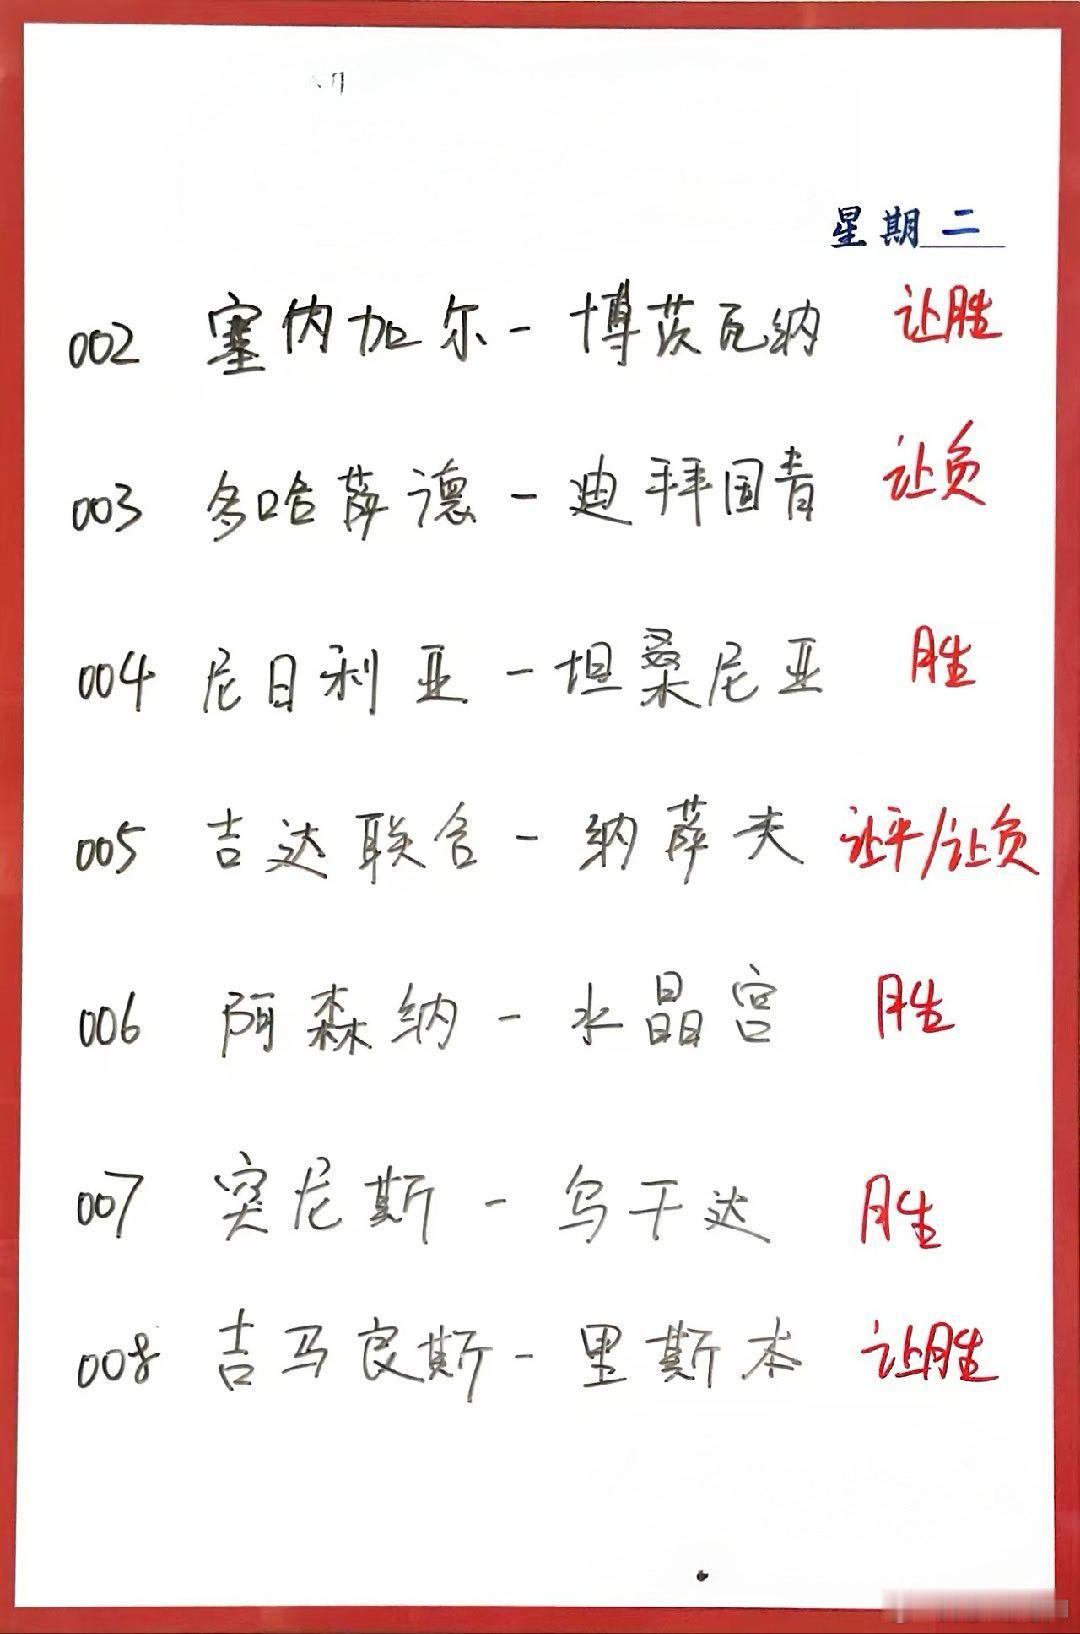 星期二
002 塞内加尔 - 博茨瓦纳 让胜
003 多哈萨德 - 迪拜国青 让负
004 尼日利亚 - 坦桑尼亚 胜
005 吉达联合 - 纳萨夫 让平/让负
006 阿森纳 - 水晶宫 胜
007 突尼斯 - 乌干达 胜
008 吉马良斯 - 里斯本 让胜